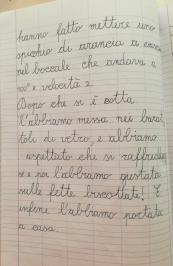 hanno fatto mettere uno
spicchio di arancia a
nel boccale che andava a
100° e velocità 2.
Dopo che si è cotta
l'abbiamo messa nei barat
toli di vetro e abbiamo
aspettato che si raffreddas
se e poi l'abbiamo gustata
sulle fette biscottate! E
infine l'abbiamo portata
a casa.